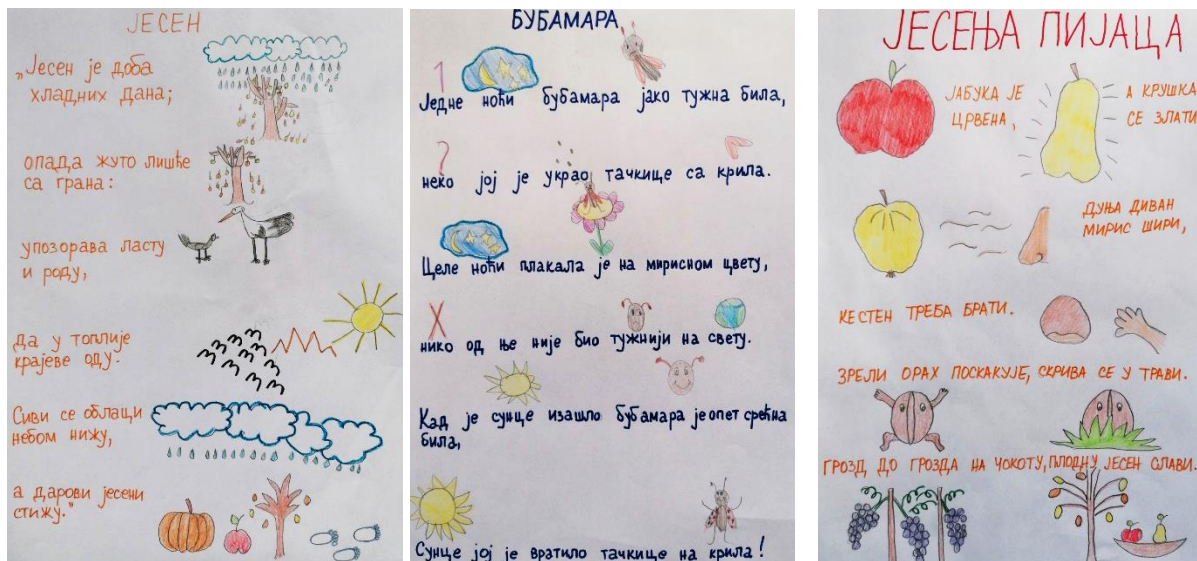 ЈЕСЕН
„Јесен је доба
хладних дана;
опада жуто лишће
са грана:
упозорава ласту
и роду,
да у топлије
крајеве оду.
Сиви се облаци
небом нижу,
а дарови јесени
стижу."
БУБАМАРА
1
Једне ноћи бубамара јако тужна била,
?
неко јој је украо тачкице са крила.
Целе ноћи плакала је на мирисном цвету,
X
нико од ње није био тужнији на свету.
Кад је сунце изашло бубамара је опет срећна
била,
Сунце јој је вратило тачкице на крила!
ЈЕСЕЊА ПИЈАЦА
ЈАБУКА ЈЕ
ЦРВЕНА,
А КРУШКА
СЕ ЗЛАТИ
ДУЊА ДИВАН
МИРИС ШИРИ,
КЕСТЕН ТРЕБА БРАТИ.
ЗРЕЛИ ОРАХ ПОСКАКУЈЕ, СКРИВА СЕ У ТРАВИ.
ГРОЗД ДО ГРОЗДА НА ЧОКОТУ, ПЛОДНУ ЈЕСЕН СЛАВИ.